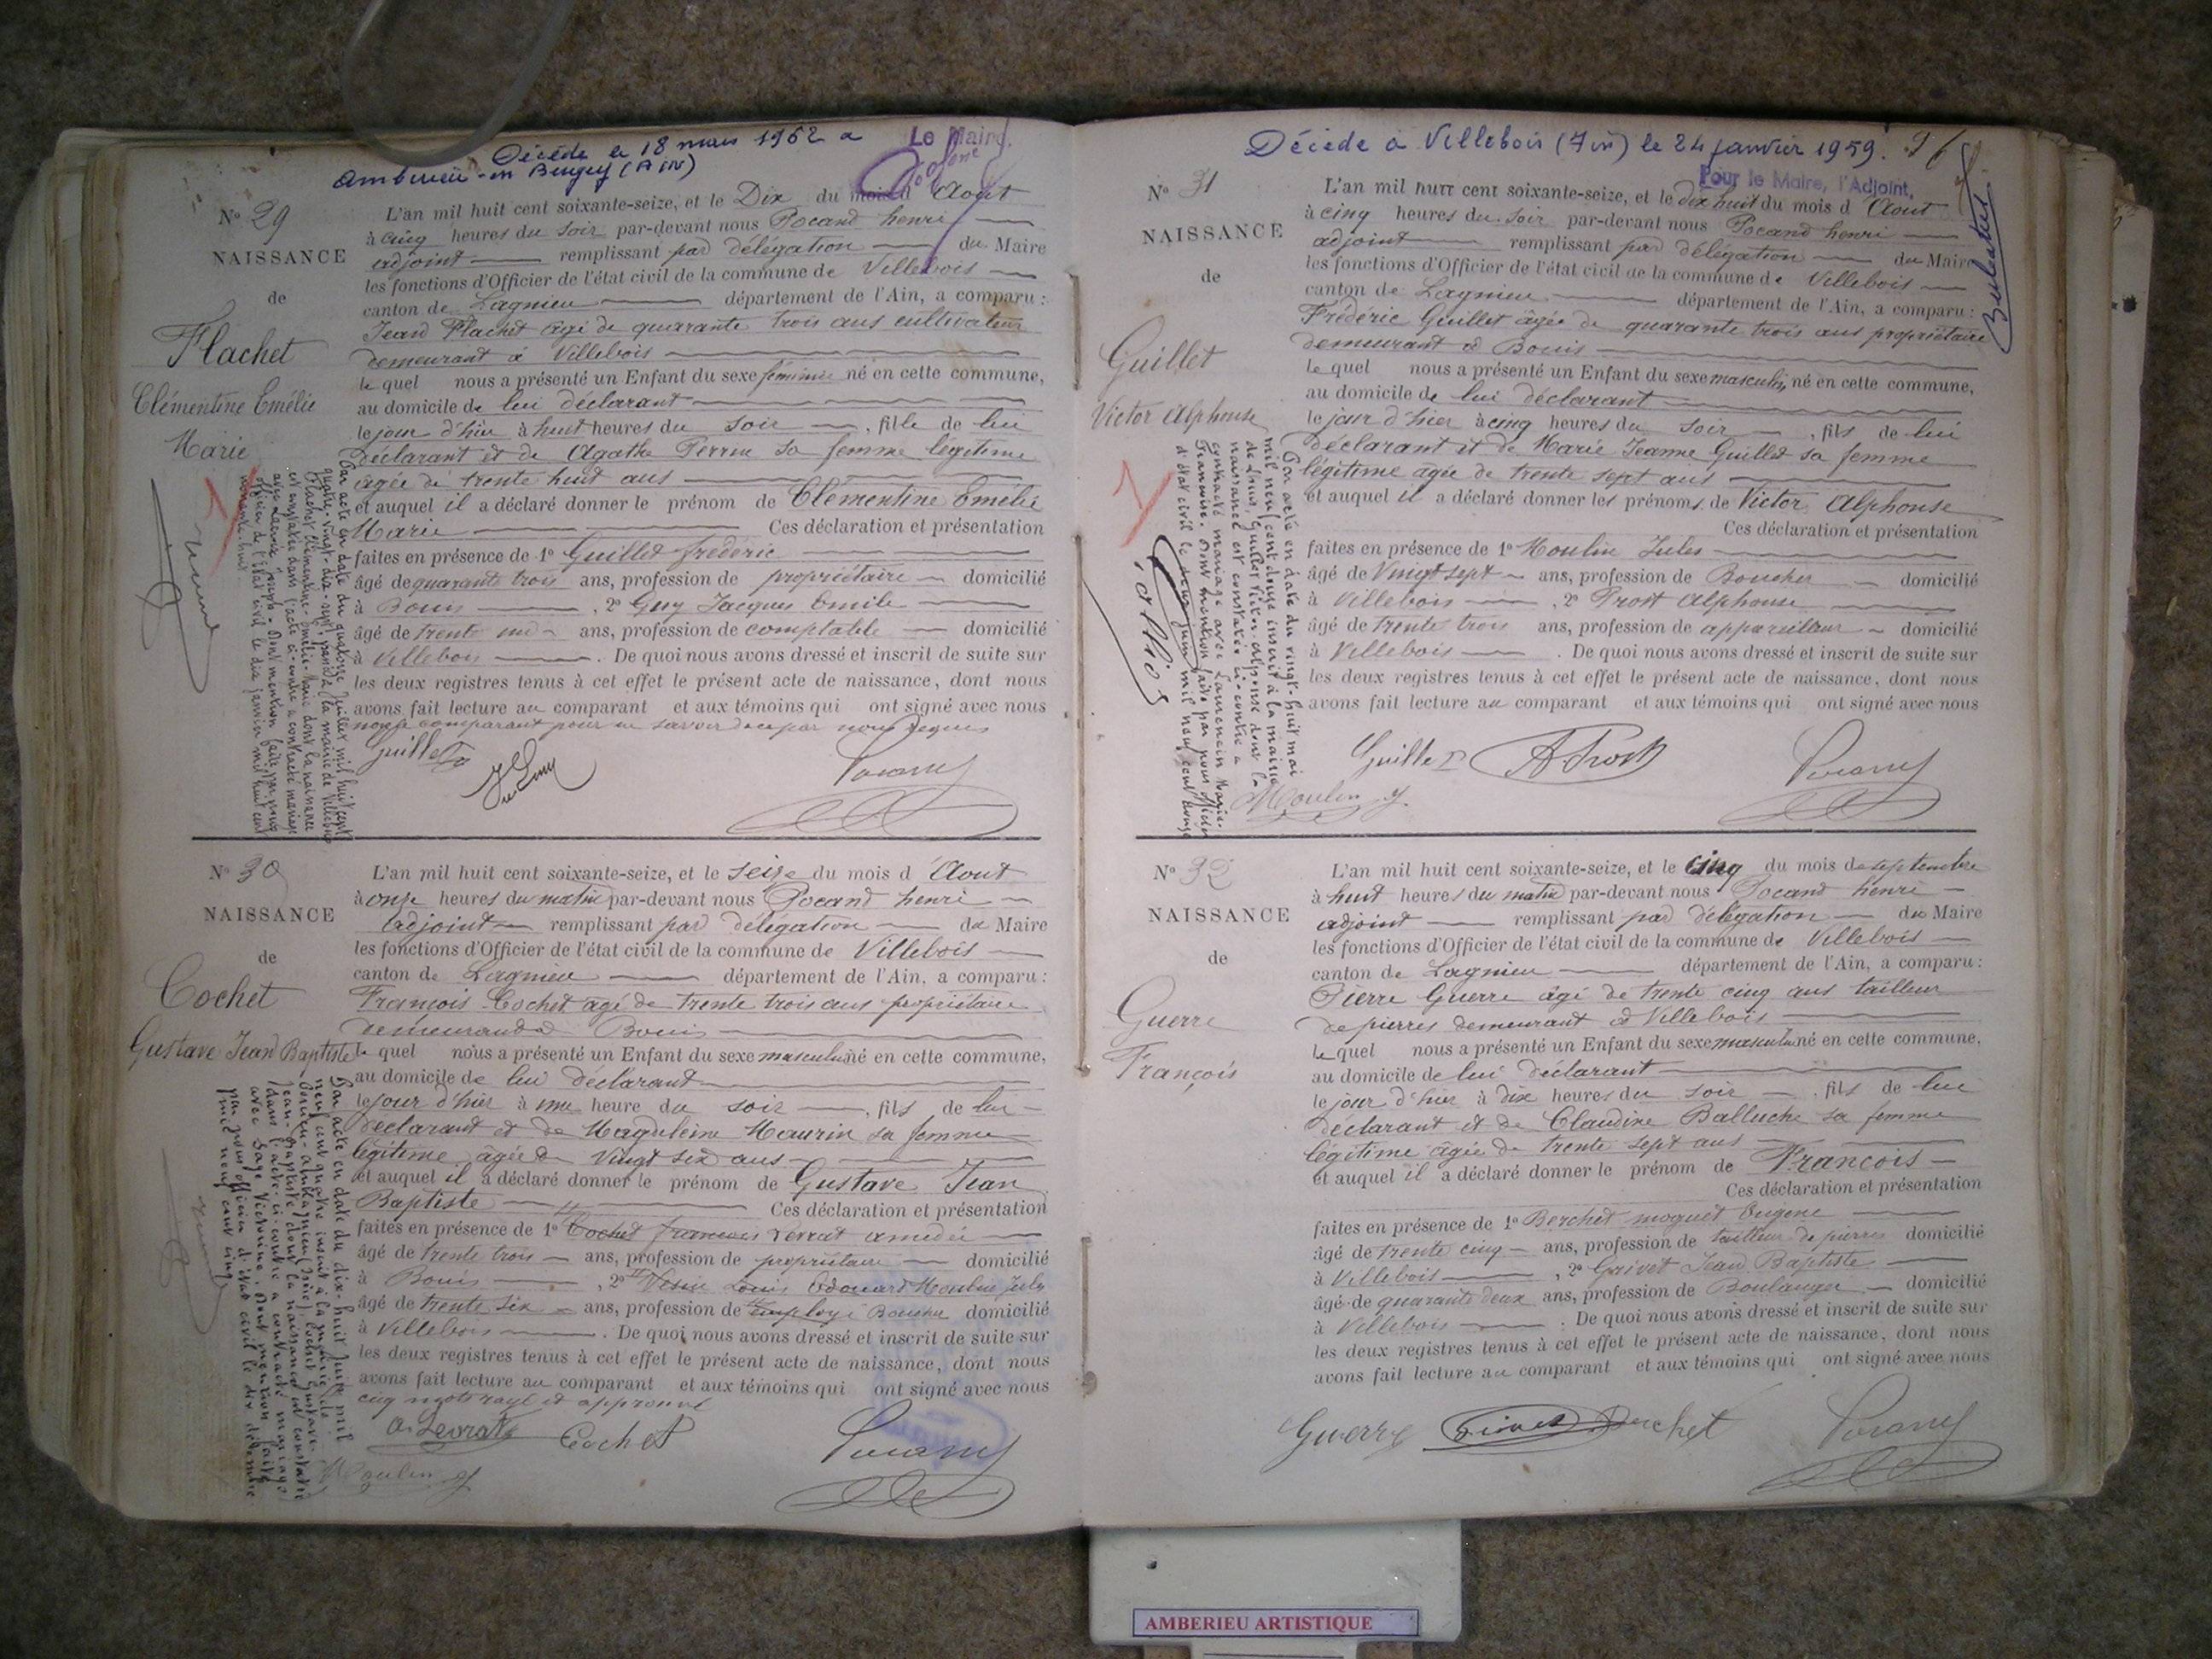 Décédé le 18 mars 1952 a
Ambérieu-en Bugey (Ain)
Le Maire,
N° 29
NAISSANCE
de
Flachet
Clémentine Emélie
Marie
L'an mil huit cent soixante-seize, et le Dix du mois d Aout
à cinq heures du soir par-devant nous Pocand henri
adjoint remplissant par délégation du Maire
les fonctions d'Officier de l'état civil de la commune de Villebois
canton de Lagnieu département de l'Ain, a comparu :
Jean Flachet âgé de quarante trois ans cultivateur
demeurant à Villebois
le quel nous a présenté un Enfant du sexe féminin né en cette commune,
au domicile de lui déclarant
le jour d'hier à huit heures du soir, fille de lui
déclarant et de Agathe Perrin sa femme légitime
agée de trente huit ans
et auquel il a déclaré donner le prénom de Clémentine Emélie
Marie Ces déclaration et présentation
faites en présence de 1° Guillet frédéric
âgé de quarante trois ans, profession de propriétaire domicilié
à Bouis, 2° Guy Jacques Emile
âgé de trente un ans, profession de comptable domicilié
à Villebois. De quoi nous avons dressé et inscrit de suite sur
les deux registres tenus à cet effet le présent acte de naissance, dont nous
avons fait lecture au comparant et aux témoins qui ont signé avec nous
non le comparant pour ne savoir de ce par nous requis
Guillet
Par acte en date du quatorze Juillet mil huit cent
quatre-vingt-dix-sept, passé à la mairie de Villebois
Flachet Clémentine-Emélie-Marie dont la naissance
est constatée dans l'acte ci-contre a contracté mariage
officier de l'Etat civil le dix janvier mil huit cent
N° 30
NAISSANCE
de
Cochet
Gustave Jean Baptiste
L'an mil huit cent soixante-seize, et le seize du mois d Aout
à onze heures du matin par-devant nous Pocand henri
adjoint remplissant par délégation du Maire
les fonctions d'Officier de l'état civil de la commune de Villebois
canton de Lagnieu département de l'Ain, a comparu :
François Cochet agé de trente trois ans propriétaire
demeurant à Bouis
le quel nous a présenté un Enfant du sexe masculin né en cette commune,
au domicile de lui déclarant
le jour d'hier à une heure du soir, fils de lui
déclarant et de Magdeleine Maurin sa femme
légitime agée de vingt six ans
et auquel il a déclaré donner le prénom de Gustave Jean
Baptiste Ces déclaration et présentation
faites en présence de 1° Cochet francois Levrat amédée
âgé de trente trois ans, profession de propriétaire domicilié
à Bouis, 2° Louis Edouard Moulin Jules
âgé de trente six ans, profession de employé Boucher domicilié
à Villebois. De quoi nous avons dressé et inscrit de suite sur
les deux registres tenus à cet effet le présent acte de naissance, dont nous
avons fait lecture au comparant et aux témoins qui ont signé avec nous
cinq mots rayé et approuvé
A. Levrat Cochet
Moulin J.
Par acte en date du dix-huit Juin mil
neuf cent quatre inscrit à la mairie de
Cochet Gustave-
Jean-Baptiste dont la naissance est constatée
dans l'acte ci-contre a contracté mariage
avec Sage Victorine. Dont mention faite
par nous officier d'état civil le dix décembre
mil neuf cent cinq
Décédé à Villebois (Ain) le 24 janvier 1959.
Pour le Maire, l'Adjoint,
N° 31
NAISSANCE
de
Guillet
Victor Alphonse
L'an mil huit cent soixante-seize, et le dix huit du mois d Aout
à cinq heures du soir par-devant nous Pocand henri
adjoint remplissant par délégation du Maire
les fonctions d'Officier de l'état civil de la commune de Villebois
canton de Lagnieu département de l'Ain, a comparu :
Frédéric Guillet âgée de quarante trois ans propriétaire
demeurant à Bouis
le quel nous a présenté un Enfant du sexe masculin né en cette commune,
au domicile de lui déclarant
le jour d'hier à cinq heures du soir, fils de lui
déclarant et de Marie Jeanne Guillet sa femme
légitime agée de trente sept ans
et auquel il a déclaré donner les prénoms de Victor Alphonse
Ces déclaration et présentation
faites en présence de 1° Moulin Jules
âgé de Vingt sept ans, profession de Boucher domicilié
à Villebois, 2° Prost Alphonse
âgé de trente trois ans, profession de appareilleur domicilié
à Villebois. De quoi nous avons dressé et inscrit de suite sur
les deux registres tenus à cet effet le présent acte de naissance, dont nous
avons fait lecture au comparant et aux témoins qui ont signé avec nous
Guillet A Prost
Moulin J.
Par acte en date du vingt-huit mai
mil neuf cent douze inscrit à la mairie
de Lhuis, Guillet Victor-Alphonse dont la
naissance est constatée ci-contre a
contracté mariage avec
Dont mention faite par nous officier
d'état civil le deux juin mil neuf cent douze
N° 32
NAISSANCE
de
Guerre
François
L'an mil huit cent soixante-seize, et le cinq du mois de septembre
à huit heures du matin par-devant nous Pocand henri
adjoint remplissant par délégation du Maire
les fonctions d'Officier de l'état civil de la commune de Villebois
canton de Lagnieu département de l'Ain, a comparu :
Pierre Guerre âgé de trente cinq ans tailleur
de pierres demeurant à Villebois
le quel nous a présenté un Enfant du sexe masculin né en cette commune,
au domicile de lui déclarant
le jour d'hier à dix heures du soir, fils de lui
déclarant et de Claudine Balluche sa femme
légitime agée de trente sept ans
et auquel il a déclaré donner le prénom de François
Ces déclaration et présentation
faites en présence de 1° Berchet moquet Eugene
âgé de trente cinq ans, profession de tailleur de pierres domicilié
à Villebois, 2° Jean Baptiste
âgé de quarante deux ans, profession de Boulanger domicilié
à Villebois. De quoi nous avons dressé et inscrit de suite sur
les deux registres tenus à cet effet le présent acte de naissance, dont nous
avons fait lecture au comparant et aux témoins qui ont signé avec nous
Guerre Berchet
AMBERIEU ARTISTIQUE